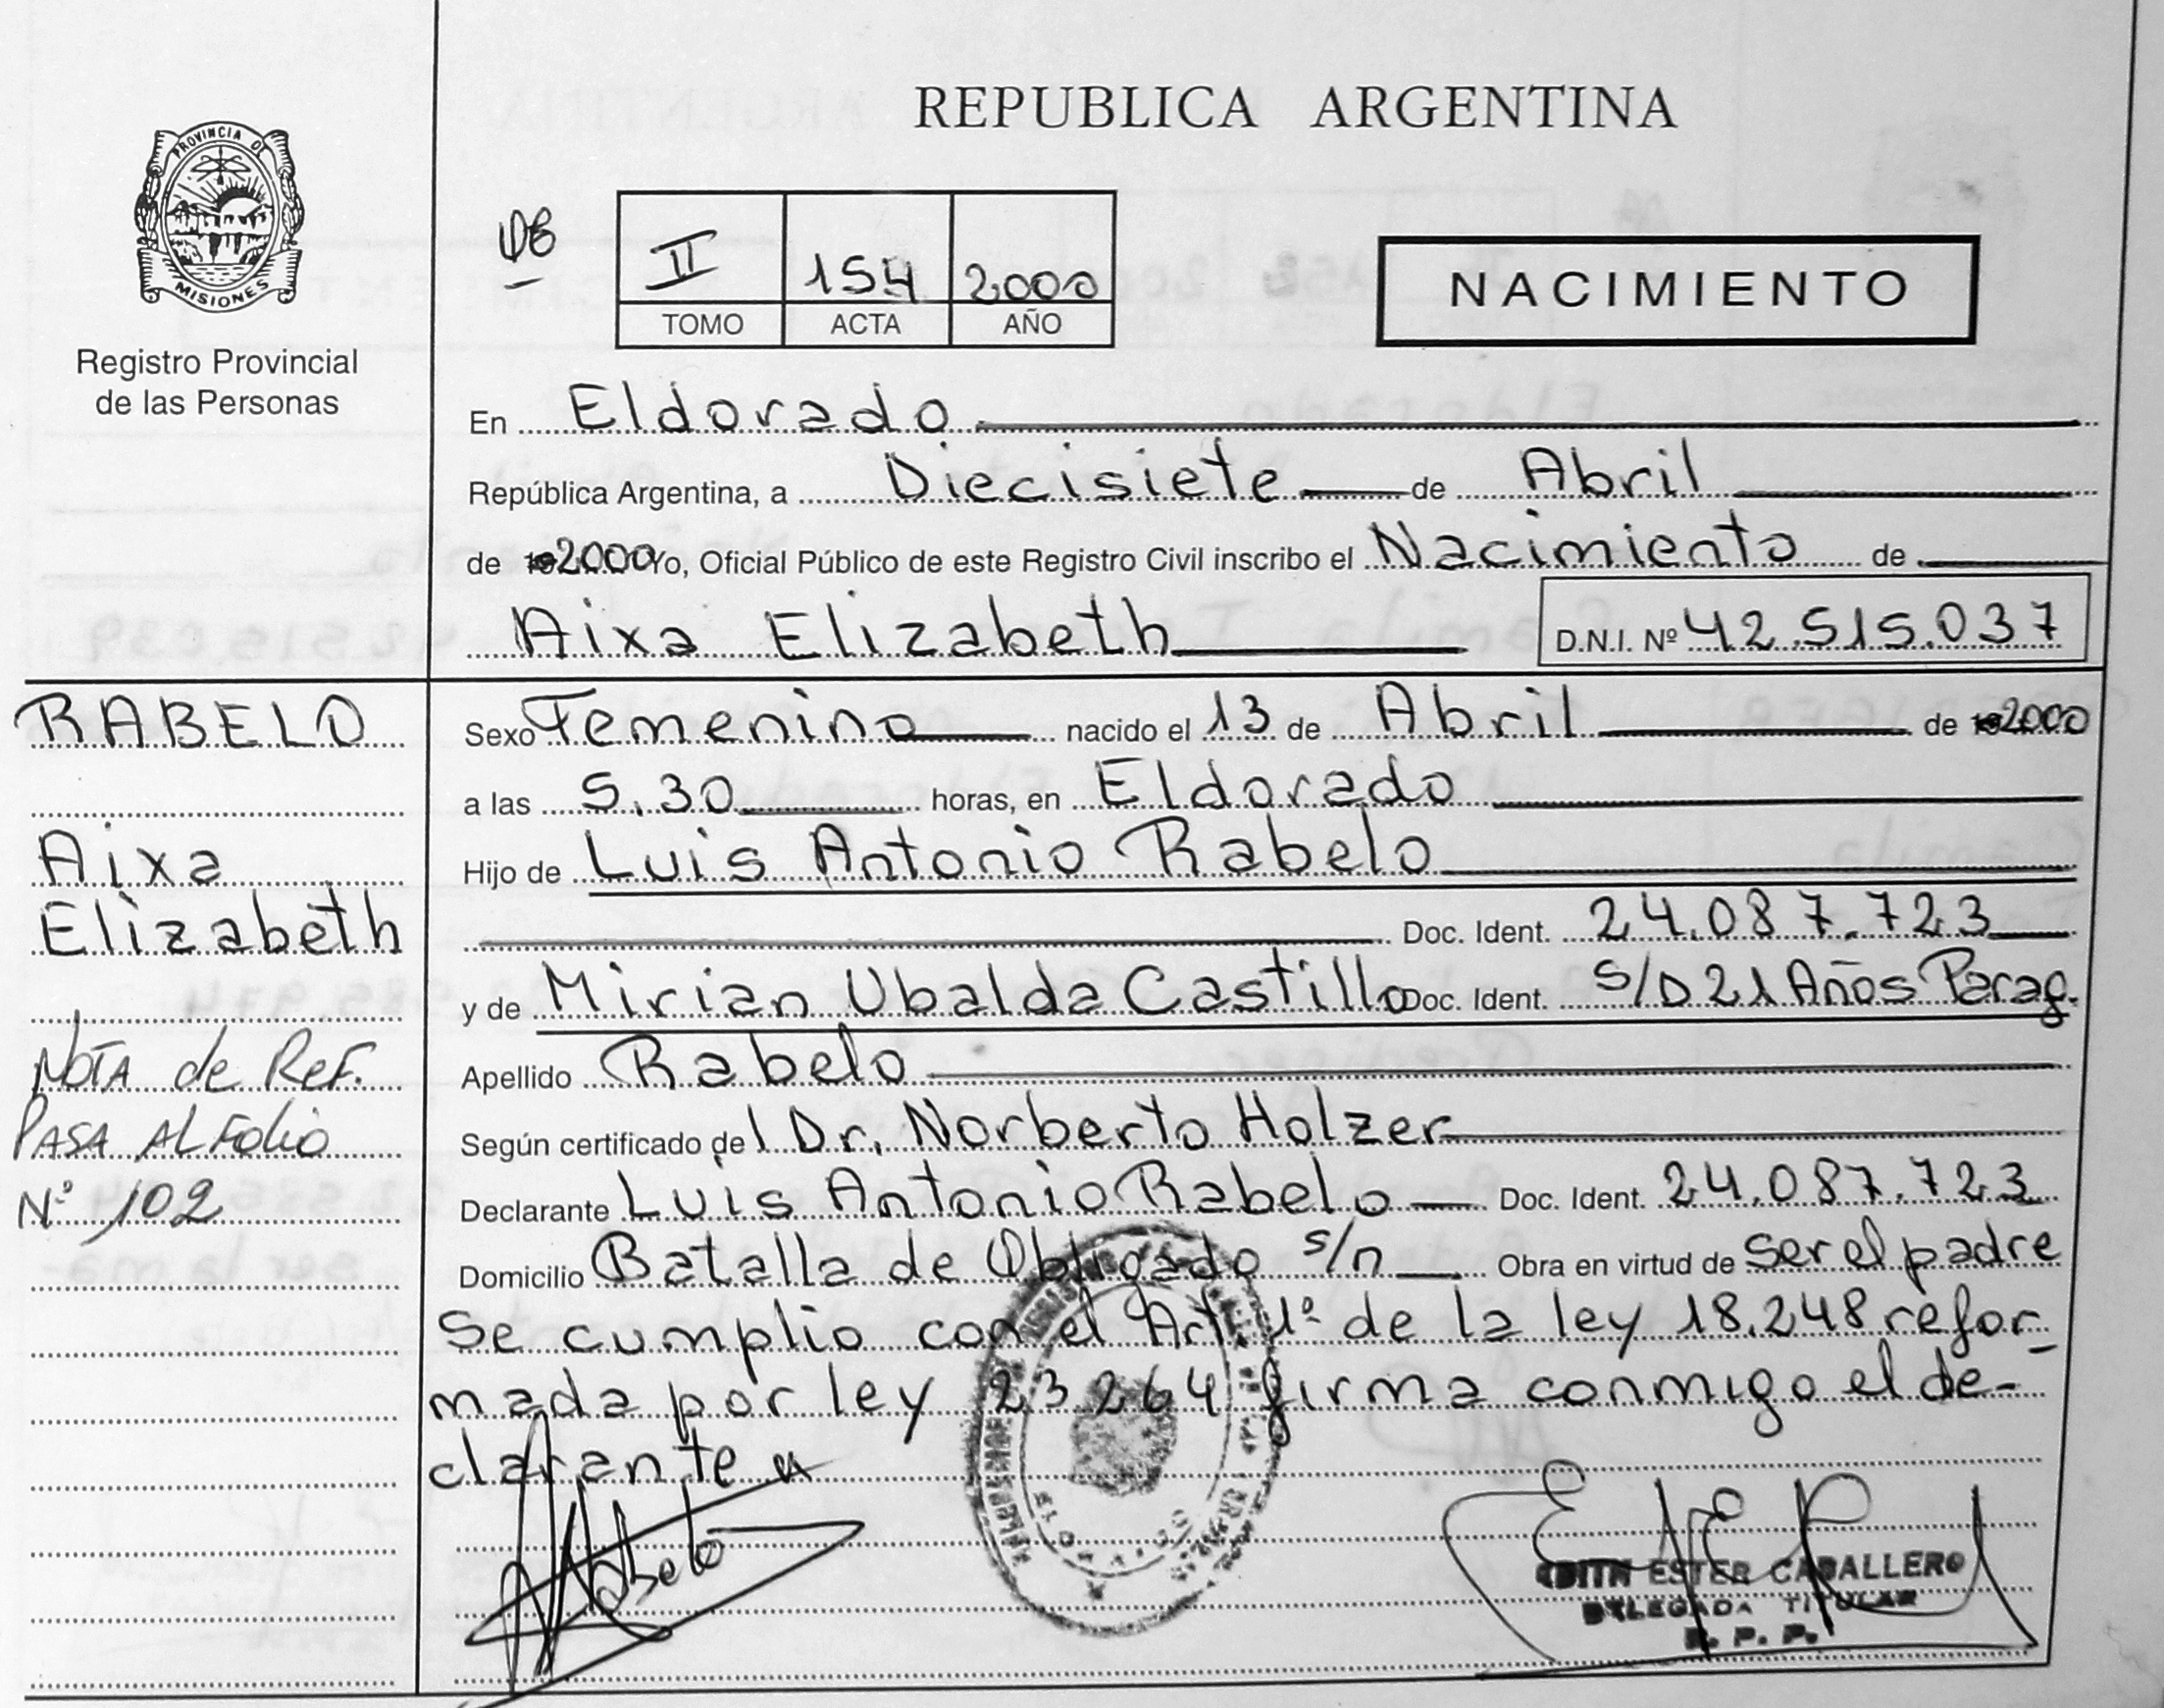 REPUBLICA ARGENTINA
PROVINCIA DE
MISIONES
Registro Provincial
de las Personas
II 154 2000
TOMO ACTA AÑO
NACIMIENTO
En Eldorado
República Argentina, a Diecisiete de Abril
de 2000 Yo, Oficial Público de este Registro Civil inscribo el Nacimiento de
Aixa Elizabeth D.N.I. Nº 42.515.037
RABELO
Aixa
Elizabeth
Nota de Ref.
Pasa al Folio
Nº 102
Sexo Femenino nacido el 13 de Abril de 2000
a las 5.30 horas, en Eldorado
Hijo de Luis Antonio Rabelo
Doc. Ident. 24.087.723
y de Mirian Ubalda Castillo Doc. Ident. S/D 21 Años Parag.
Apellido Rabelo
Según certificado del Dr. Norberto Holzer
Declarante Luis Antonio Rabelo Doc. Ident. 24.087.723
Domicilio Batalla de Obligado s/n Obra en virtud de ser el padre
Se cumplio con el Art. 1º de la ley 18.248 refor-
mada por ley 23264 firma conmigo el de-
clarante
Rabelo
EDITH ESTER CABALLERO
DELEGADA TITULAR
R. P. P.